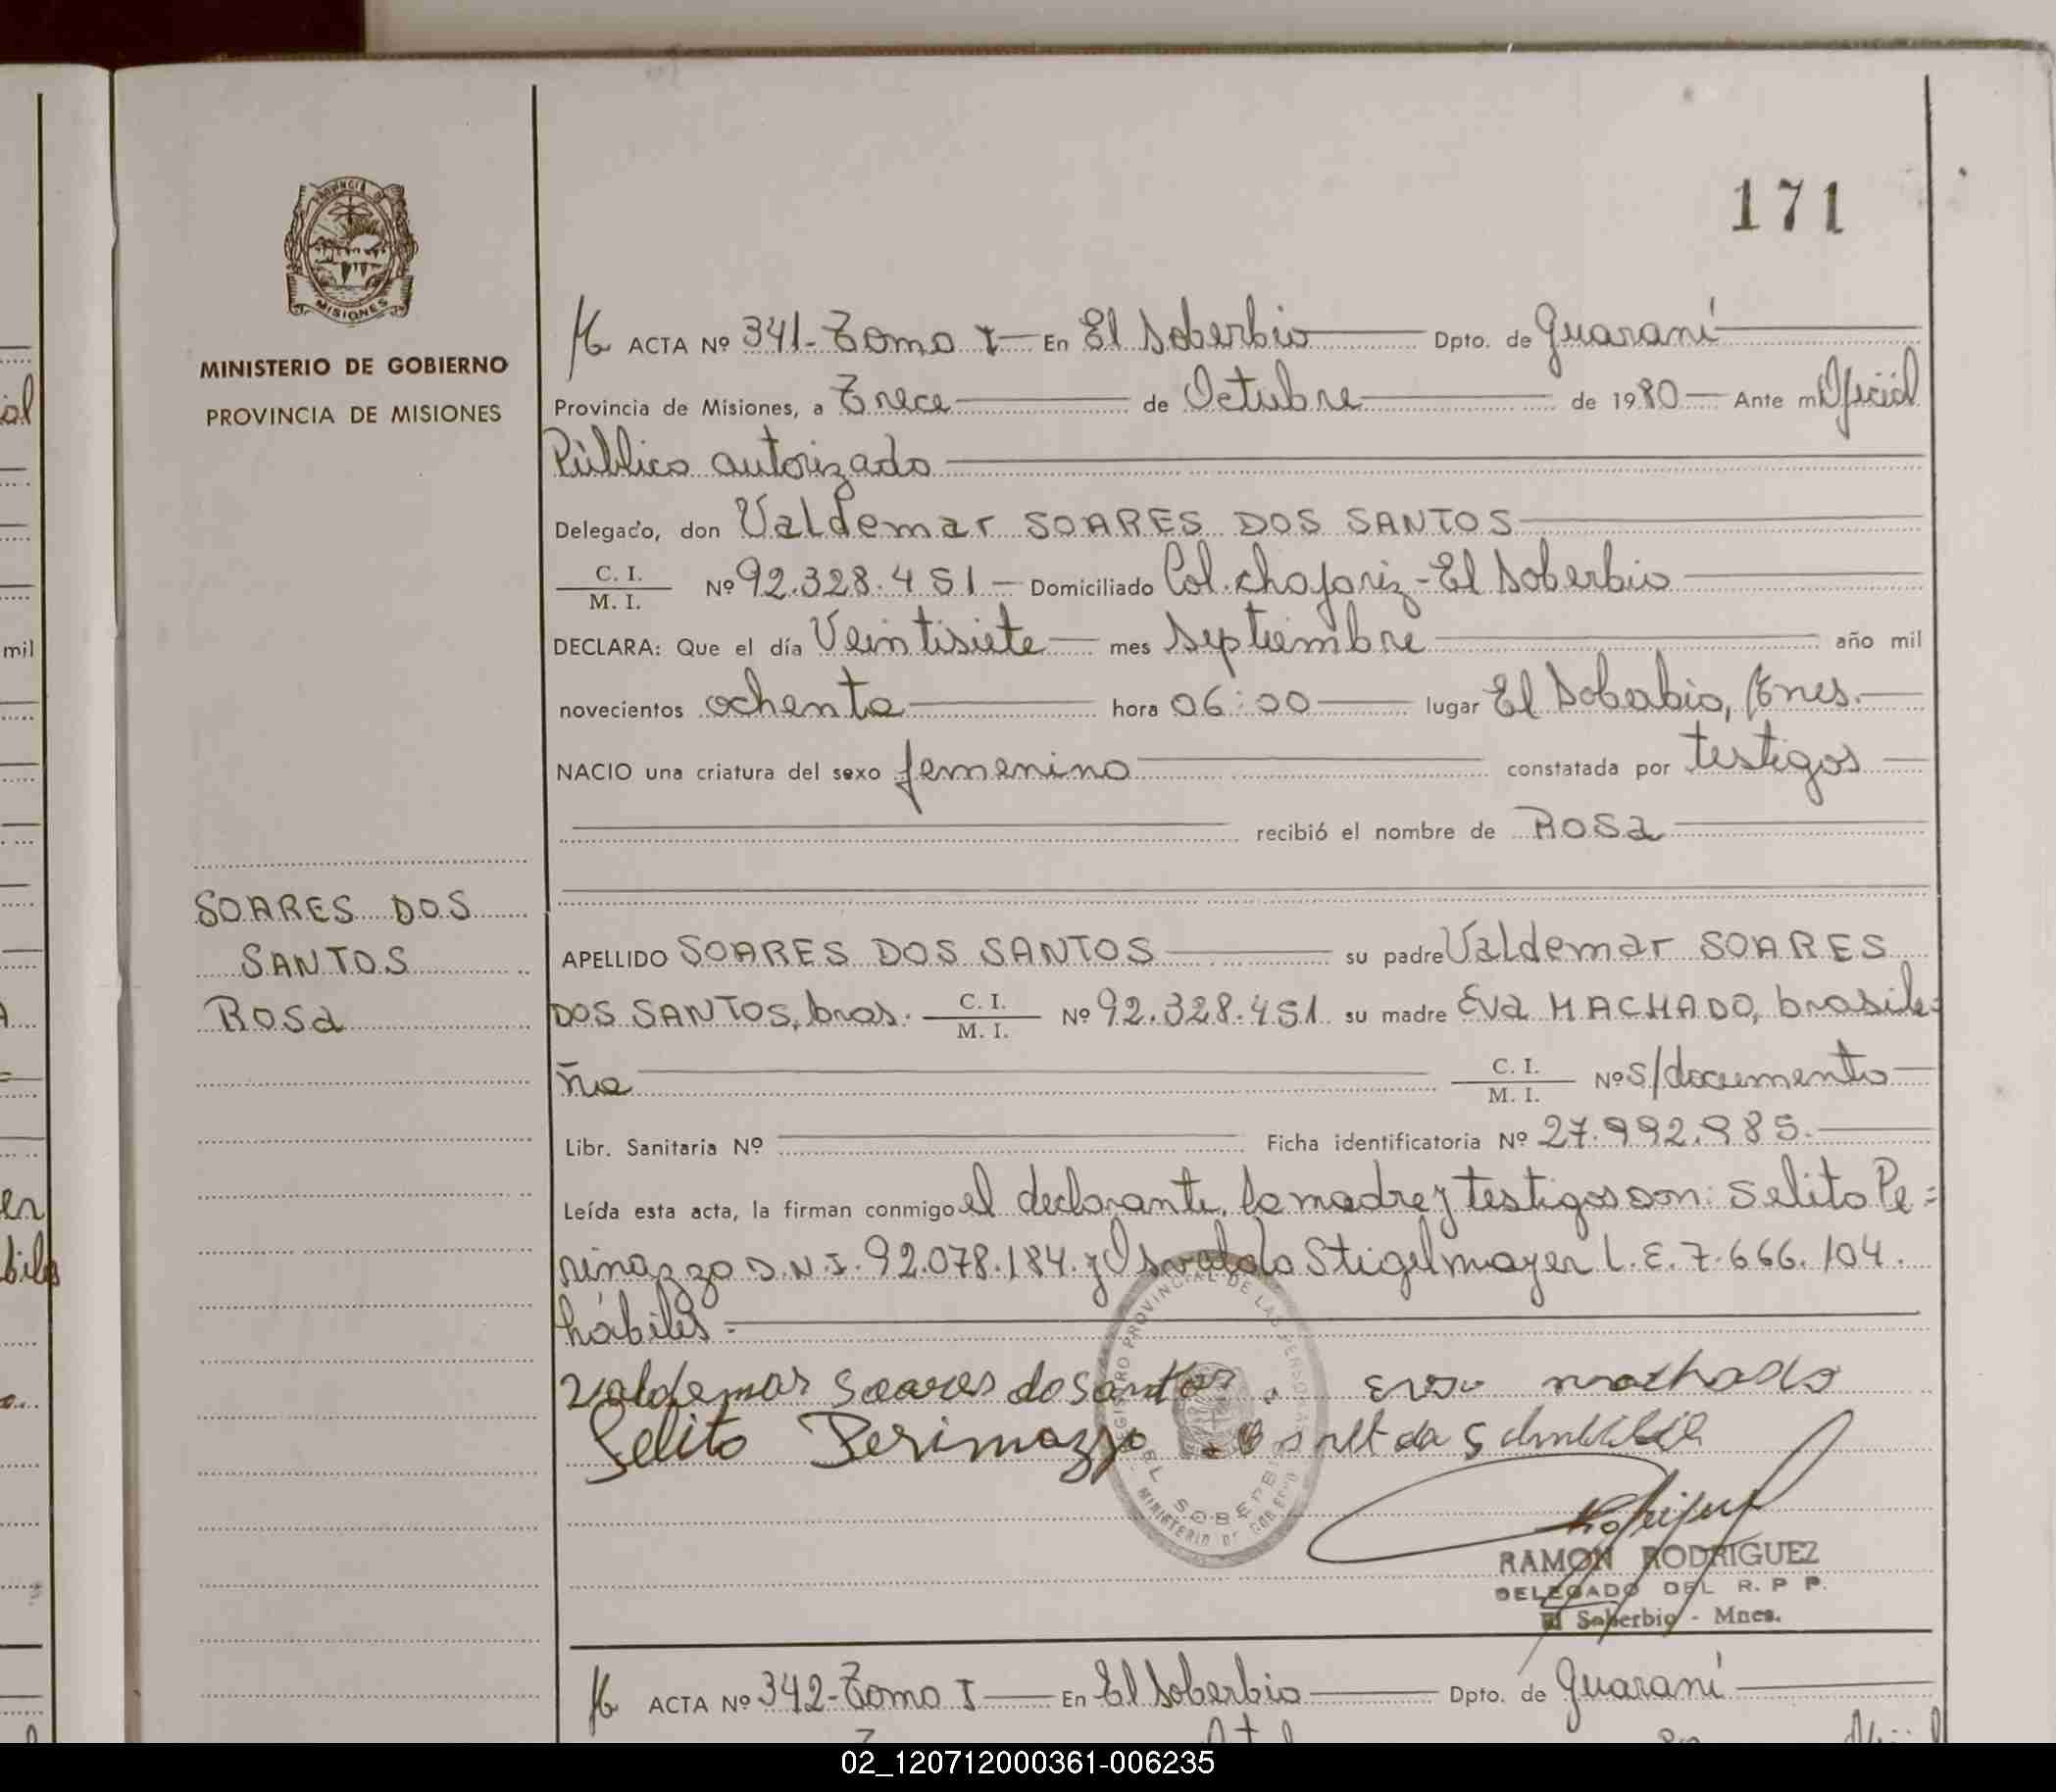 171
PROVINCIA DE
MISIONES
MINISTERIO DE GOBIERNO
PROVINCIA DE MISIONES
ACTA Nº 341- Tomo I — En El Soberbio Dpto. de Guaraní
Provincia de Misiones, a Trece de Octubre de 1980 Ante mi Oficial
Público autorizado
Delegado, don Valdemar SOARES DOS SANTOS
C. I. / M. I. Nº 92.328.451 — Domiciliado Col. chafariz - El Soberbio
DECLARA: Que el día Veintisiete mes Septiembre año mil
novecientos ochenta hora 06:00 lugar El Soberbio, Mnes.
NACIO una criatura del sexo femenino constatada por testigos
recibió el nombre de Rosa
SOARES DOS
SANTOS
Rosa
APELLIDO SOARES DOS SANTOS su padre Valdemar SOARES
DOS SANTOS, bras. C. I. / M. I. Nº 92.328.451 su madre Eva MACHADO, brasile=
ña C. I. / M. I. Nº S/documento
Libr. Sanitaria Nº Ficha identificatoria Nº 27.992.985.
Leída esta acta, la firman conmigo el declarante, la madre y testigos son: Selito Pe=
rinazzo D.N.I. 92.078.184. y Osvaldo Stigelmayer L.E. 7.666.104.
hábiles.-
Valdemar Soares do santos . Eva machado
Selito Perimazzo
REGISTRO PROVINCIAL DE LAS PERSONAS
EL SOBERBIO
MINISTERIO DE GOBIERNO
RAMON RODRIGUEZ
DELEGADO DEL R. P P.
El Soberbio - Mnes.
ACTA Nº 342- Tomo I — En El Soberbio Dpto. de Guaraní
02_120712000361-006235